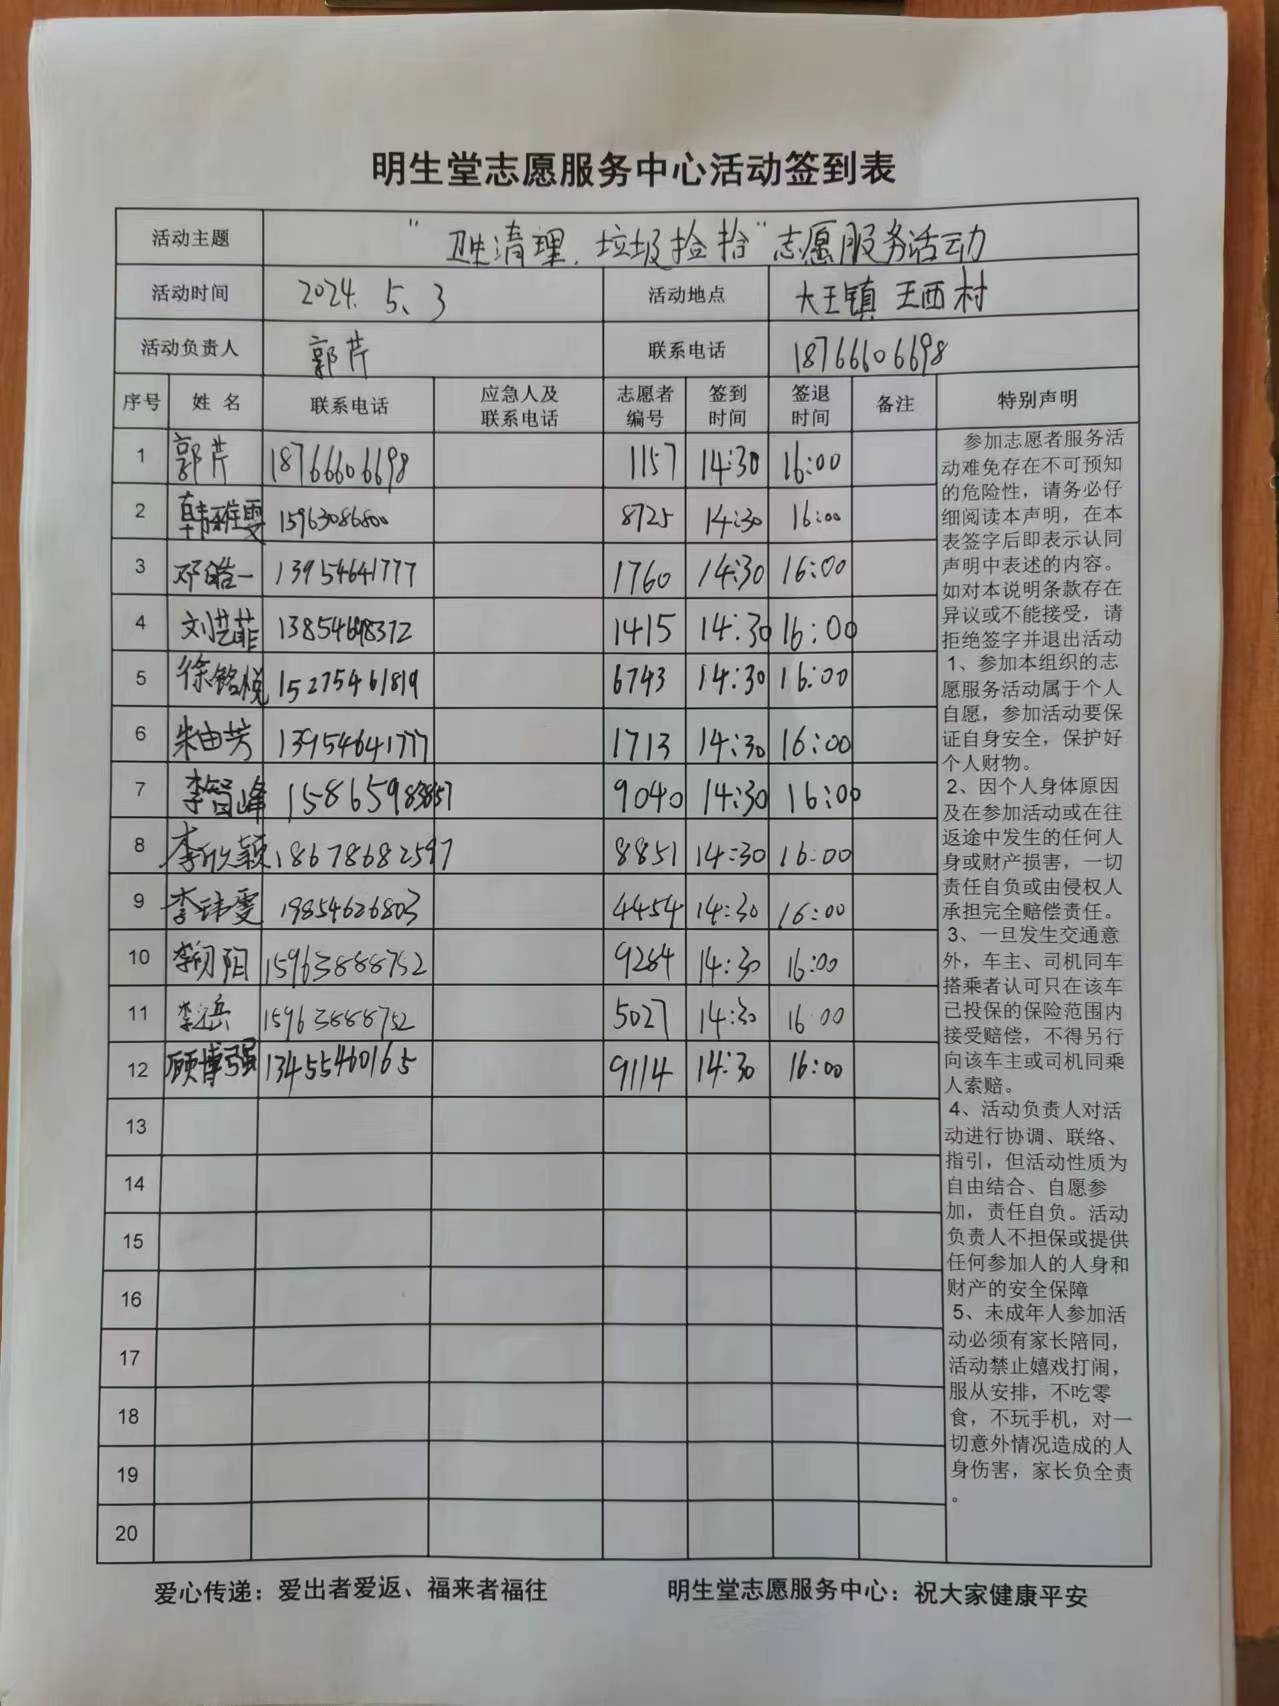 明生堂志愿服务中心活动签到表
活动主题 “卫生清理、垃圾捡拾”志愿服务活动
活动时间 2024.5.3 活动地点 大王镇 王西村
活动负责人 郭芹 联系电话 18766606698
序号 姓名 联系电话 应急人及联系电话 志愿者编号 签到时间 签退时间 备注 特别声明
1 郭芹 18766606698 1157 14:30 16:00
2 韩雅雯 15963086800 8725 14:30 16:00
3 邓皓一 13954641777 1760 14:30 16:00
4 刘芸菲 13854698372 1415 14:30 16:00
5 徐铭悦 15275461819 6743 14:30 16:00
6 朱由芳 13954641777 1713 14:30 16:00
7 李智峰 9040 14:30 16:00
8 李欣颖 18678682597 8851 14:30 16:00
9 李玮雯 19854626803 4454 14:30 16:00
10 15963888752 9284 14:30 16:00
11 15963888752 5027 14:30 16:00
12 顾博强 13455460165 9114 14:30 16:00
13
14
15
16
17
18
19
20
参加志愿者服务活
动难免存在不可预知
的危险性，请务必仔
细阅读本声明，在本
表签字后即表示认同
声明中表述的内容。
如对本说明条款存在
异议或不能接受，请
拒绝签字并退出活动
1、参加本组织的志
愿服务活动属于个人
自愿，参加活动要保
证自身安全，保护好
个人财物。
2、因个人身体原因
及在参加活动或在往
返途中发生的任何人
身或财产损害，一切
责任自负或由侵权人
承担完全赔偿责任。
3、一旦发生交通意
外，车主、司机同车
搭乘者认可只在该车
已投保的保险范围内
接受赔偿，不得另行
向该车主或司机同乘
人索赔。
4、活动负责人对活
动进行协调、联络、
指引，但活动性质为
自由结合、自愿参
加，责任自负。活动
负责人不担保或提供
任何参加人的人身和
财产的安全保障
5、未成年人参加活
动必须有家长陪同，
活动禁止嬉戏打闹，
服从安排，不吃零
食，不玩手机，对一
切意外情况造成的人
身伤害，家长负全责
。
爱心传递：爱出者爱返、福来者福往 明生堂志愿服务中心：祝大家健康平安